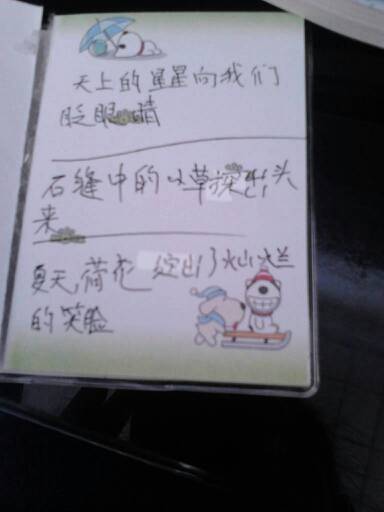 天上的星星向我们
眨眼睛
石缝中的小草探出头
来
夏天荷花绽出了灿烂
的笑脸